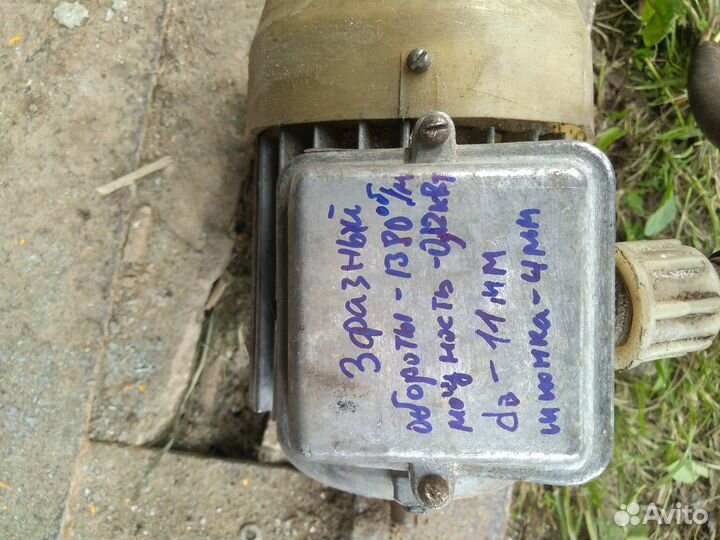 3 фазный
обороты - 1380 об/м
мощность - 0,12 квт
dв - 11 мм
шпонка - 4 мм
Avito